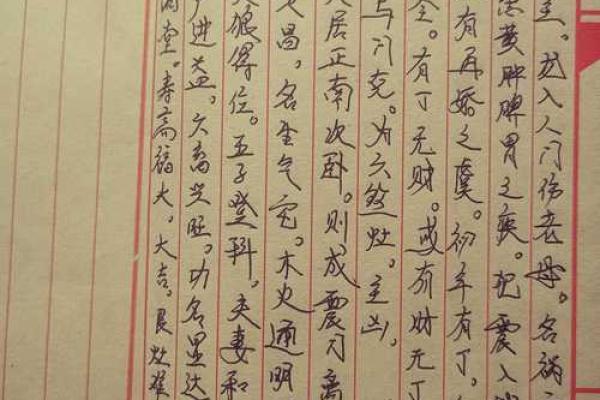 主。龙入人门伤老母。名祸
患黄肿脾胃之疾。犯震入
有再婚之虞。初年有丁。
全。有丁无财。或有财无丁
与门克。为六煞灶。主凶。
居正南次卧。则成震门离
文昌。名生气宅。木火通明
贪狼得位。五子登科。夫妻和
进益。六畜兴旺。功名显达
满堂。寿高福大。大吉。艮灶